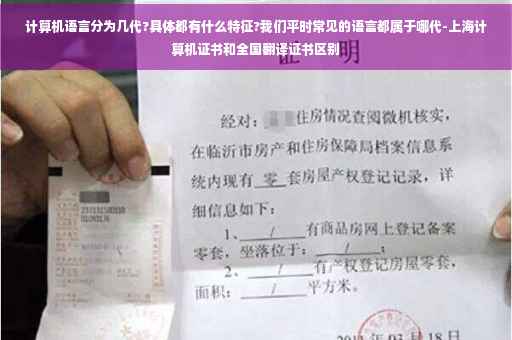 计算机语言分为几代?具体都有什么特征?我们平时常见的语言都属于哪代-上海计
算机证书和全国翻译证书区别
证 明
经对:住房情况查阅微机核实,
在临沂市房产和住房保障局档案信息系
统内现有 零 套房屋产权登记记录,详
细信息如下:
1、 / 有商品房网上登记备案
零套,坐落位于: / ;
2、 / 有产权登记房屋零套,
面积: / 平方米。
03月18日